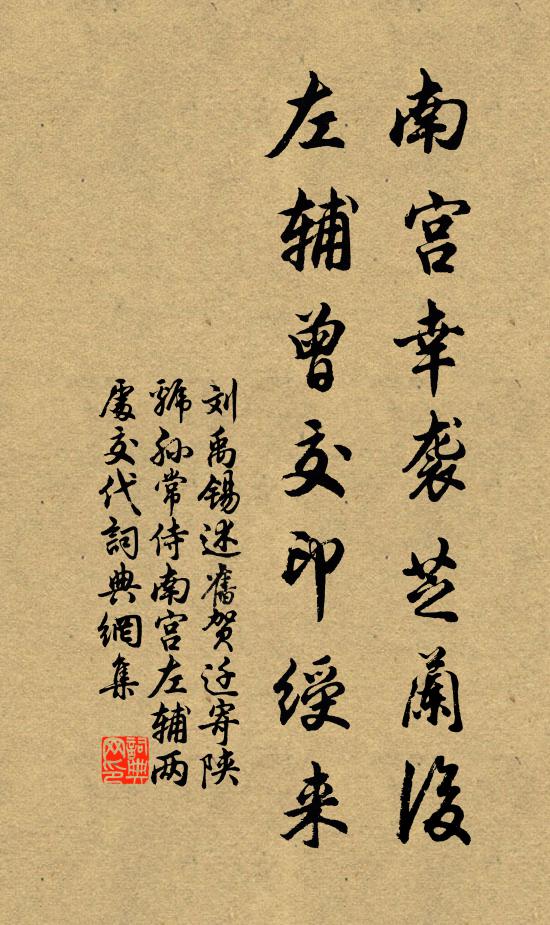 南宫幸袭芝蘭後
左辅曾交印绶来
刘禹锡述舊贺迁寄陕
虢孙常侍南宫左辅两
處交代詞典網集
詞典网印